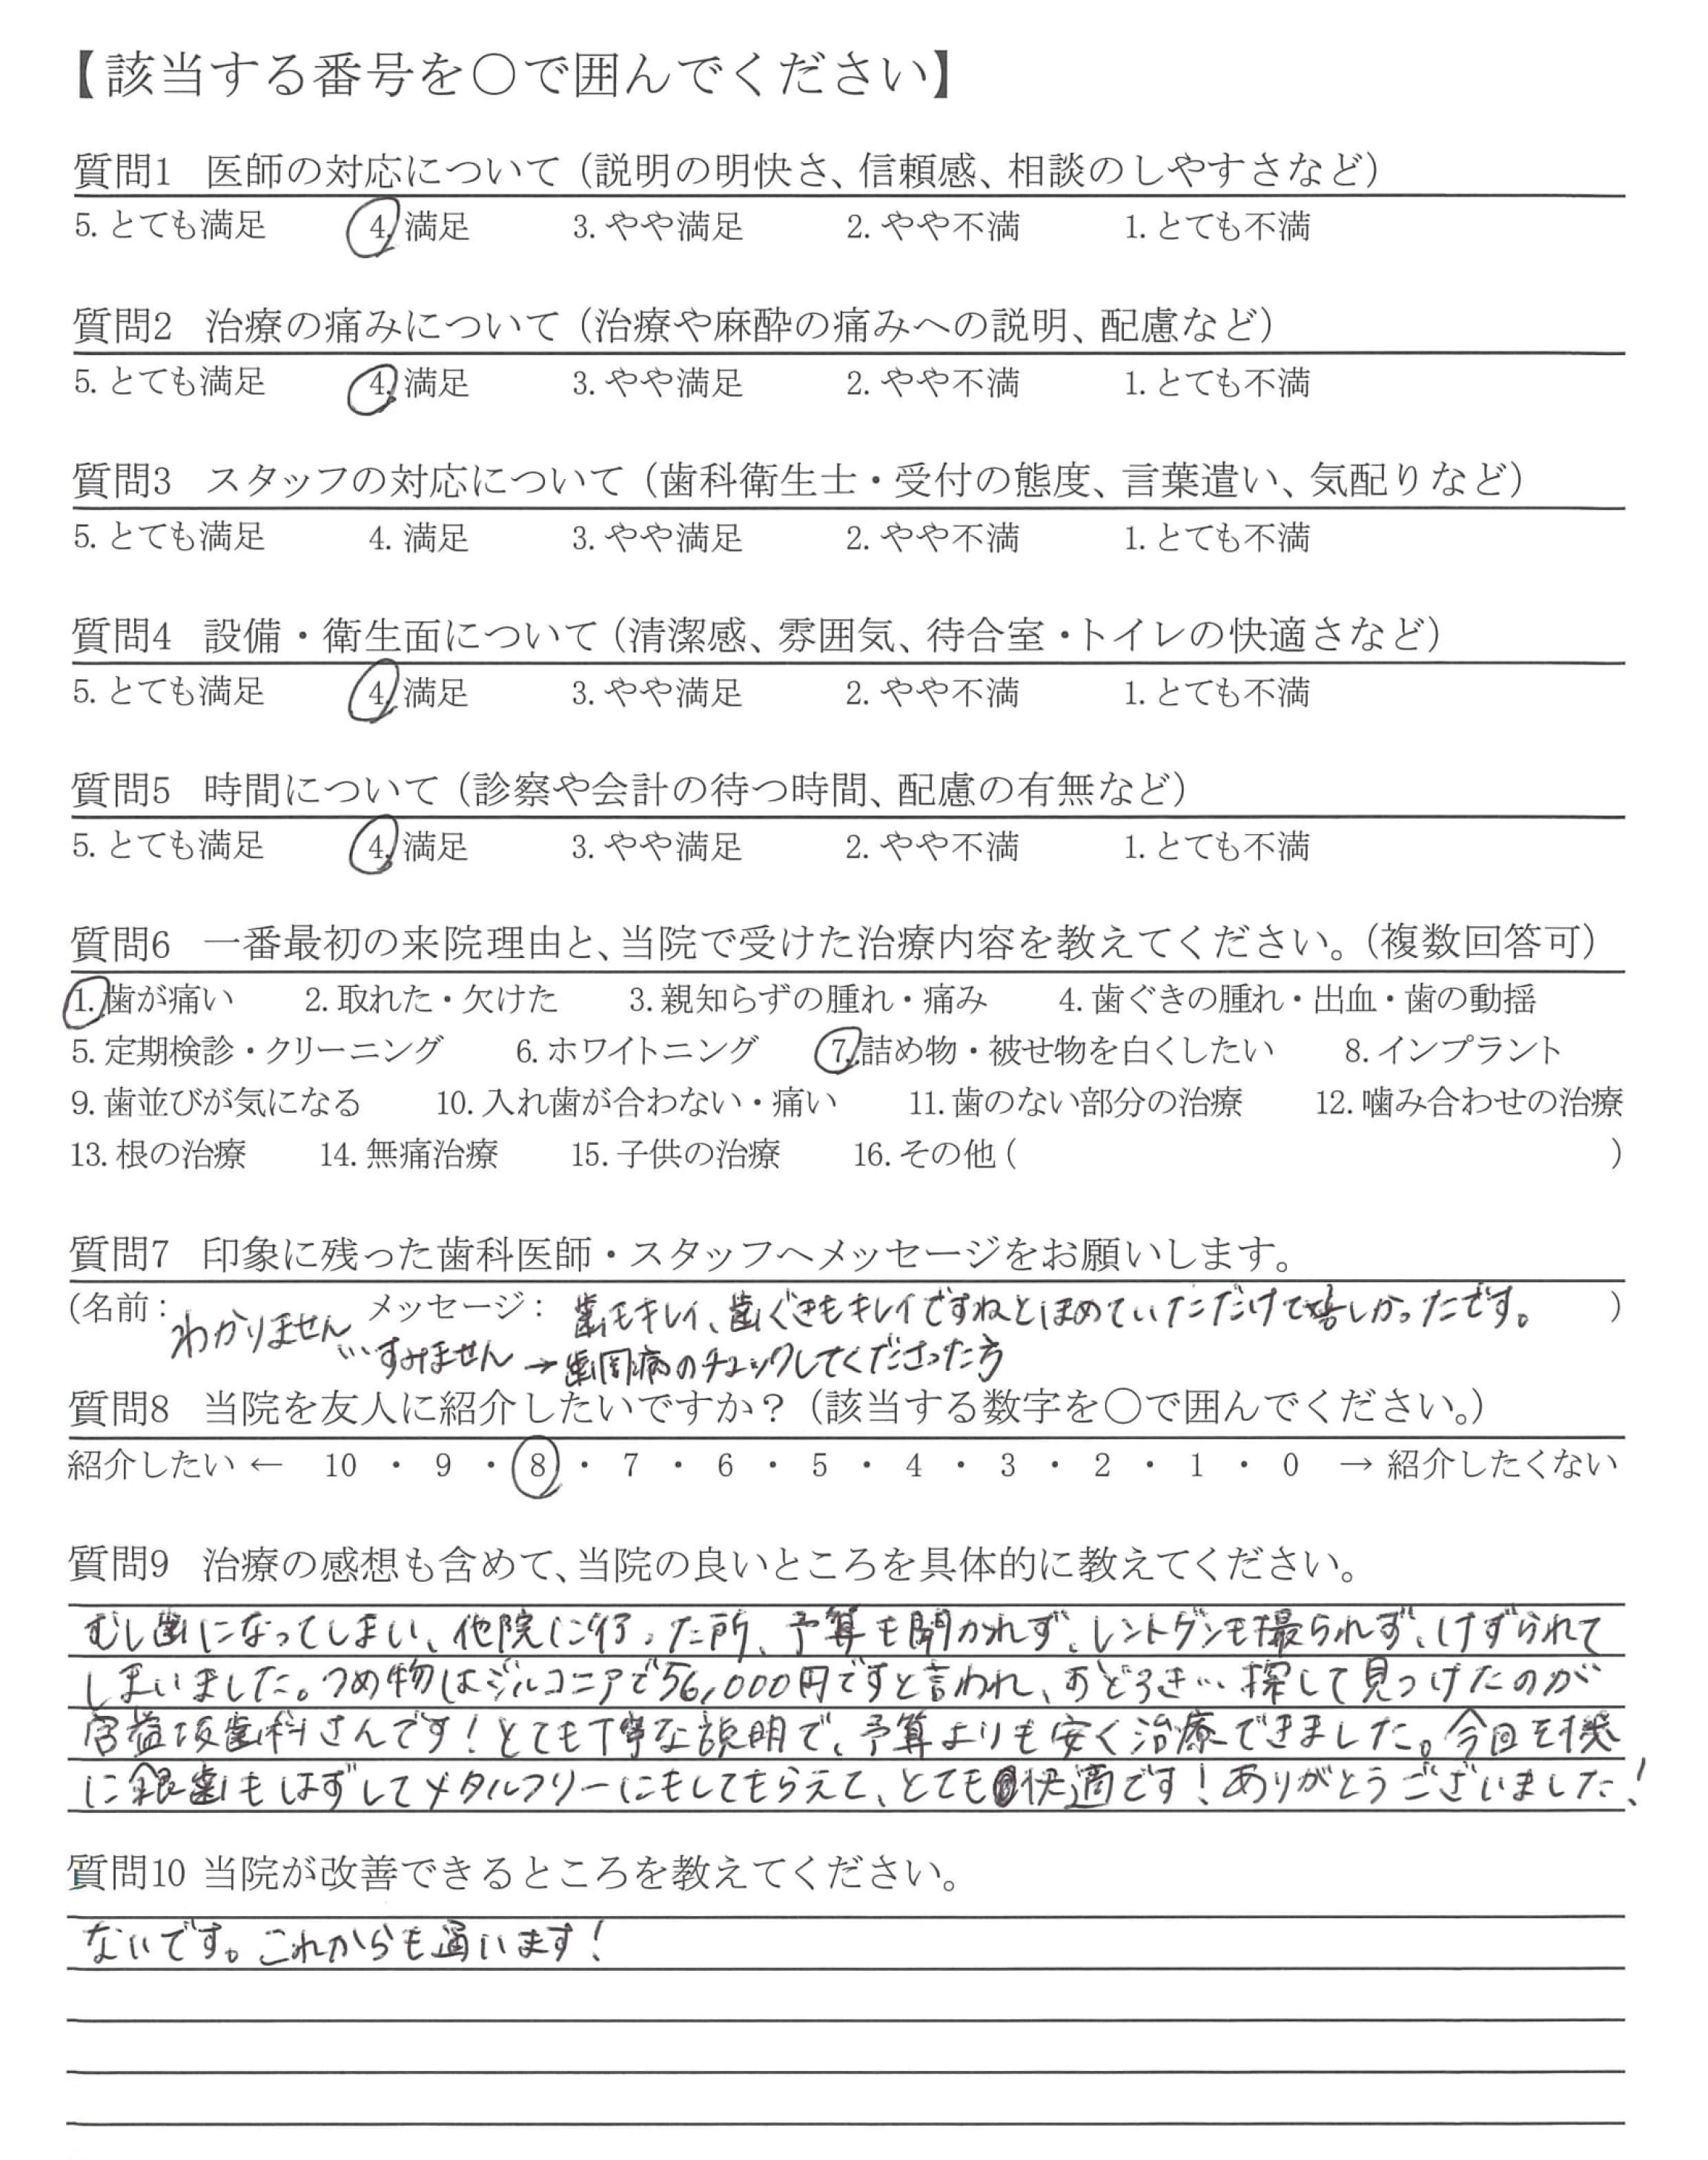 【該当する番号を〇で囲んでください】
質問1 医師の対応について（説明の明快さ、信頼感、相談のしやすさなど）
5. とても満足 4. 満足 3. やや満足 2. やや不満 1. とても不満
質問2 治療の痛みについて（治療や麻酔の痛みへの説明、配慮など）
5. とても満足 4. 満足 3. やや満足 2. やや不満 1. とても不満
質問3 スタッフの対応について（歯科衛生士・受付の態度、言葉遣い、気配りなど）
5. とても満足 4. 満足 3. やや満足 2. やや不満 1. とても不満
質問4 設備・衛生面について（清潔感、雰囲気、待合室・トイレの快適さなど）
5. とても満足 4. 満足 3. やや満足 2. やや不満 1. とても不満
質問5 時間について（診察や会計の待つ時間、配慮の有無など）
5. とても満足 4. 満足 3. やや満足 2. やや不満 1. とても不満
質問6 一番最初の来院理由と、当院で受けた治療内容を教えてください。（複数回答可）
1. 歯が痛い 2. 取れた・欠けた 3. 親知らずの腫れ・痛み 4. 歯ぐきの腫れ・出血・歯の動揺
5. 定期検診・クリーニング 6. ホワイトニング 7. 詰め物・被せ物を白くしたい 8. インプラント
9. 歯並びが気になる 10. 入れ歯が合わない・痛い 11. 歯のない部分の治療 12. 噛み合わせの治療
13. 根の治療 14. 無痛治療 15. 子供の治療 16. その他 ( )
質問7 印象に残った歯科医師・スタッフへメッセージをお願いします。
(名前： わかりません メッセージ： 歯もキレイ、歯ぐきもキレイですねとほめていただけて嬉しかったです。 )
…すみません → 歯周病のチェックしてくださった方
質問8 当院を友人に紹介したいですか？（該当する数字を〇で囲んでください。）
紹介したい ← 10 ・ 9 ・ 8 ・ 7 ・ 6 ・ 5 ・ 4 ・ 3 ・ 2 ・ 1 ・ 0 → 紹介したくない
質問9 治療の感想も含めて、当院の良いところを具体的に教えてください。
むし歯になってしまい、他院に行った所、予算も聞かれず、レントゲンも撮られず、けずられて
しまいました。つめ物はジルコニアで56,000円ですと言われ、おどろき… 探して見つけたのが
宮益坂歯科さんです！とても丁寧な説明で、予算よりも安く治療できました。今回を機
に銀歯もはずしてメタルフリーにもしてもらえて、とても快適です！ありがとうございました！
質問10 当院が改善できるところを教えてください。
ないです。これからも通います！